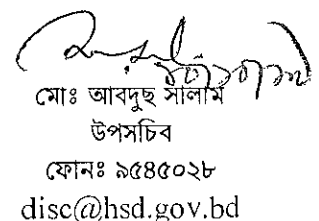 মোঃ আবদুছ সালাম
উপসচিব
ফোনঃ ৯৫৪৫০২৮
disc@hsd.gov.bd